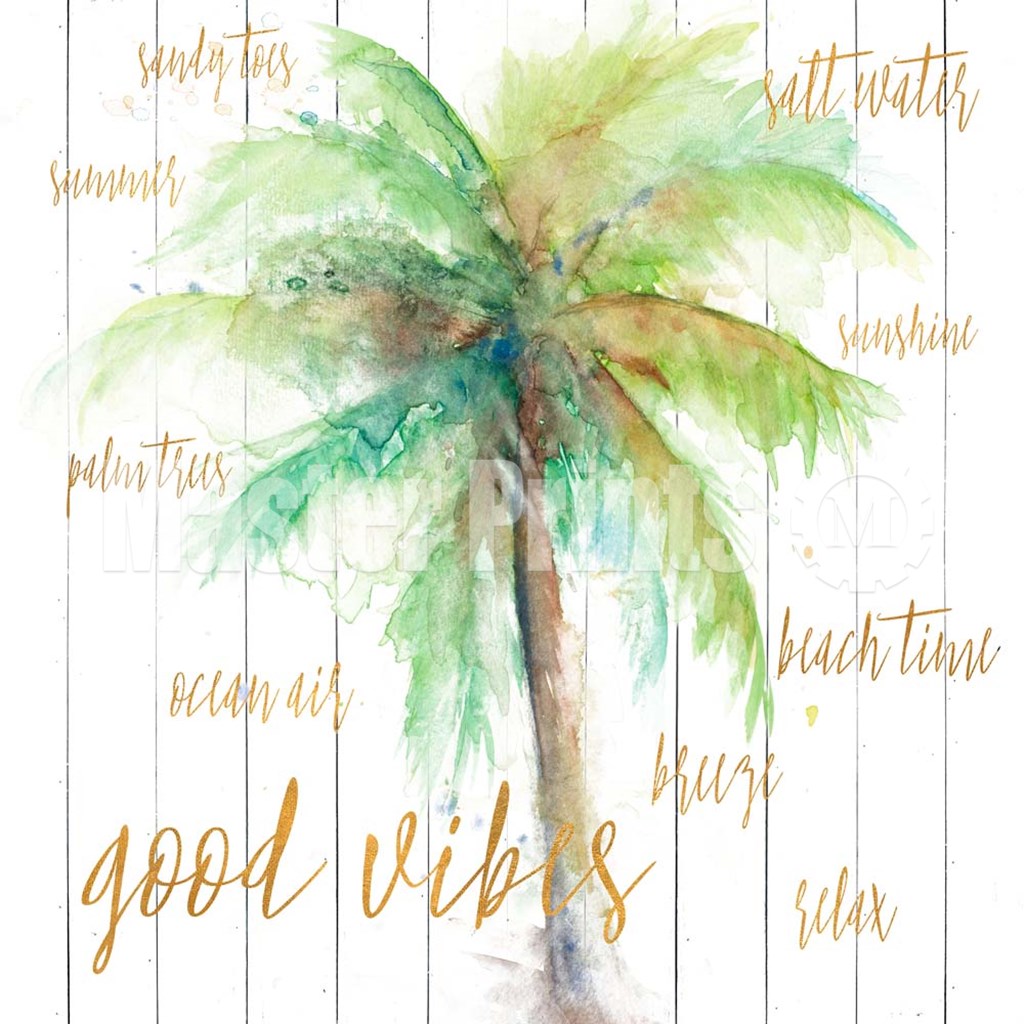 sandy toes
salt water
summer
sunshine
palm trees
Master Prints M
beach time
ocean air
breeze
good vibes
relax